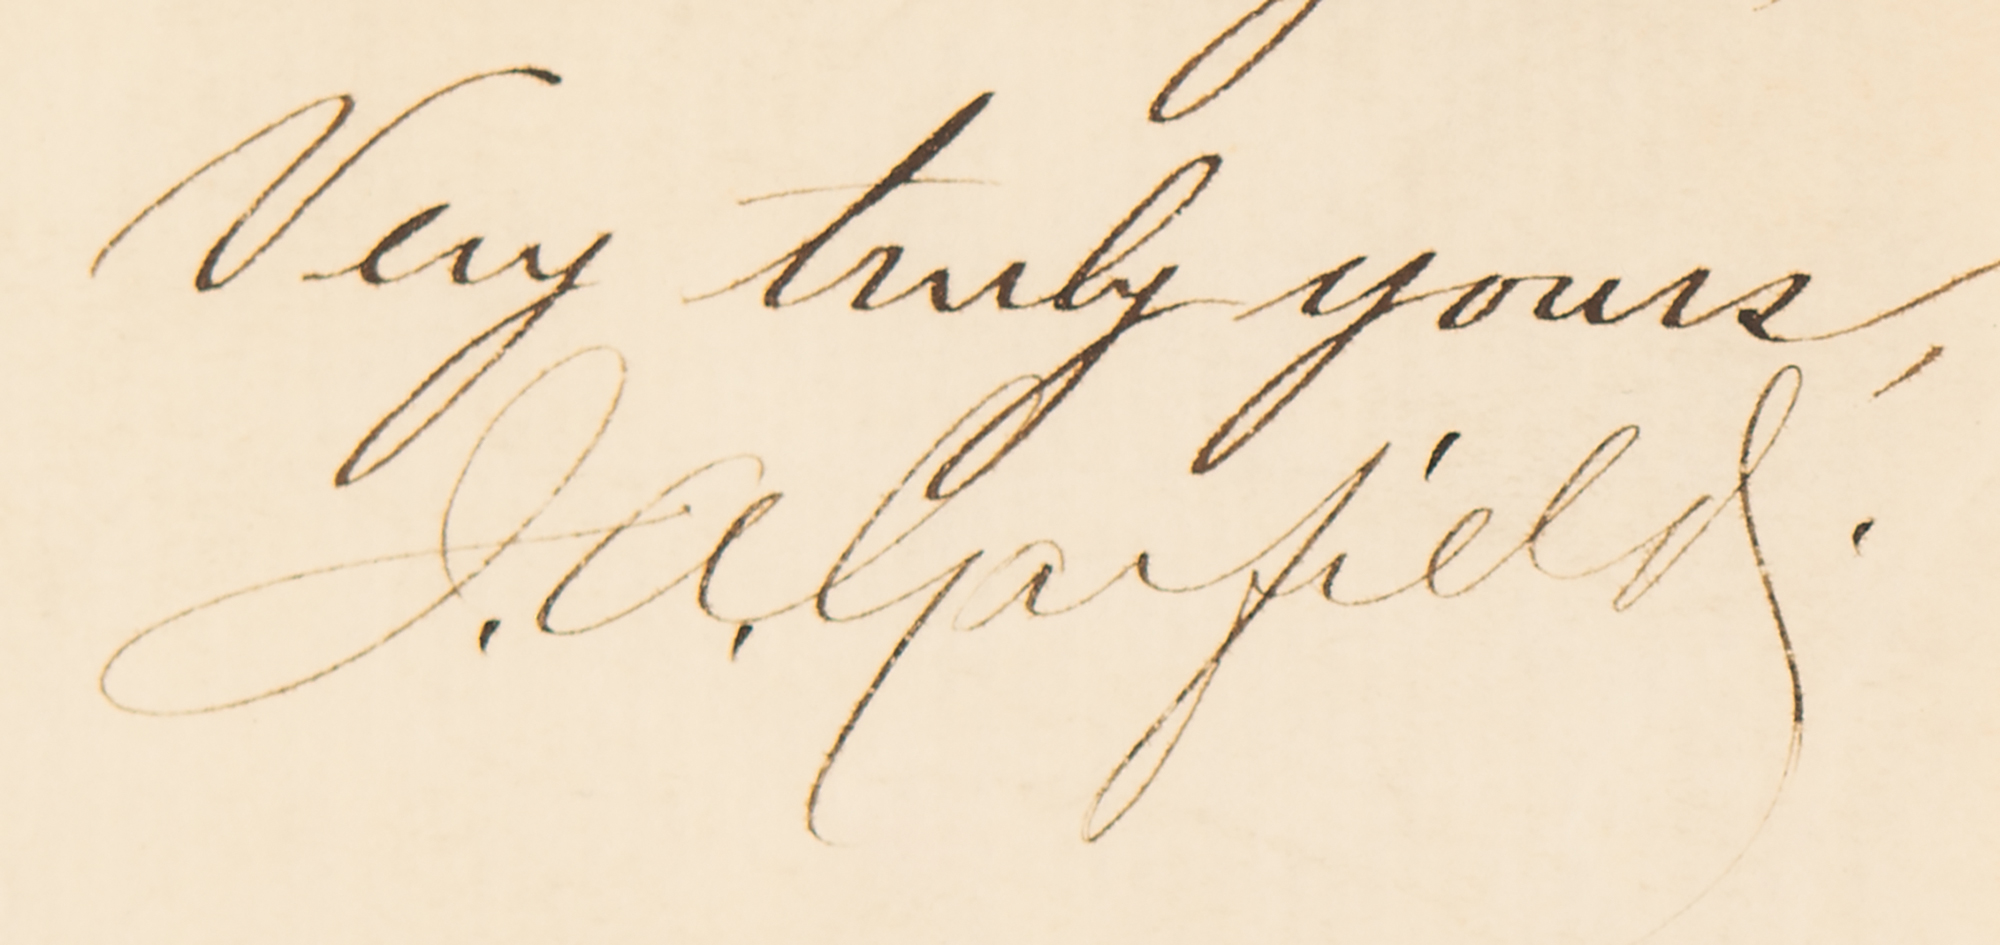 Very truly yours,
J. A. Garfield.